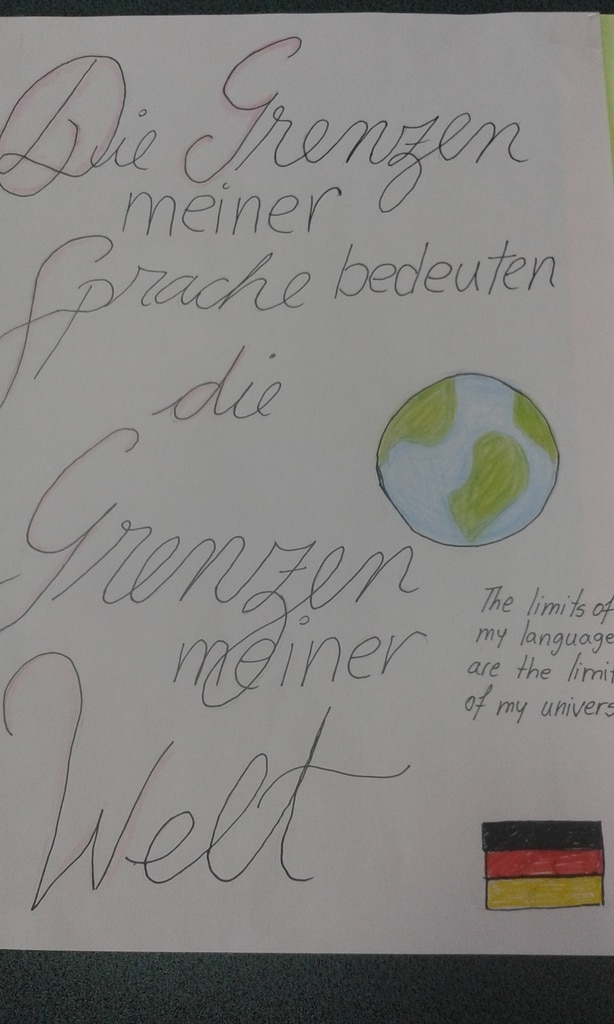 Die Grenzen
meiner
Sprache bedeuten
die
Grenzen
meiner
Welt
The limits of
my language
are the limi
of my univers